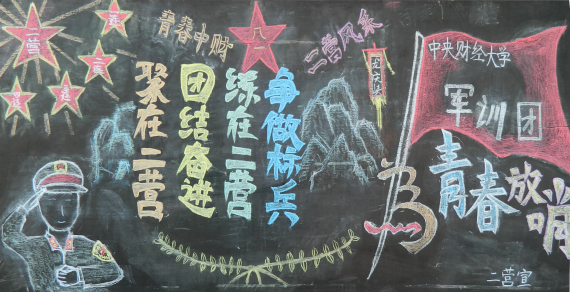 二营
青春中财
八一
二营风采
聚在二营
团结奋进
练在二营
争做标兵
中央财经大学
军训团
为青春放哨
二营宣